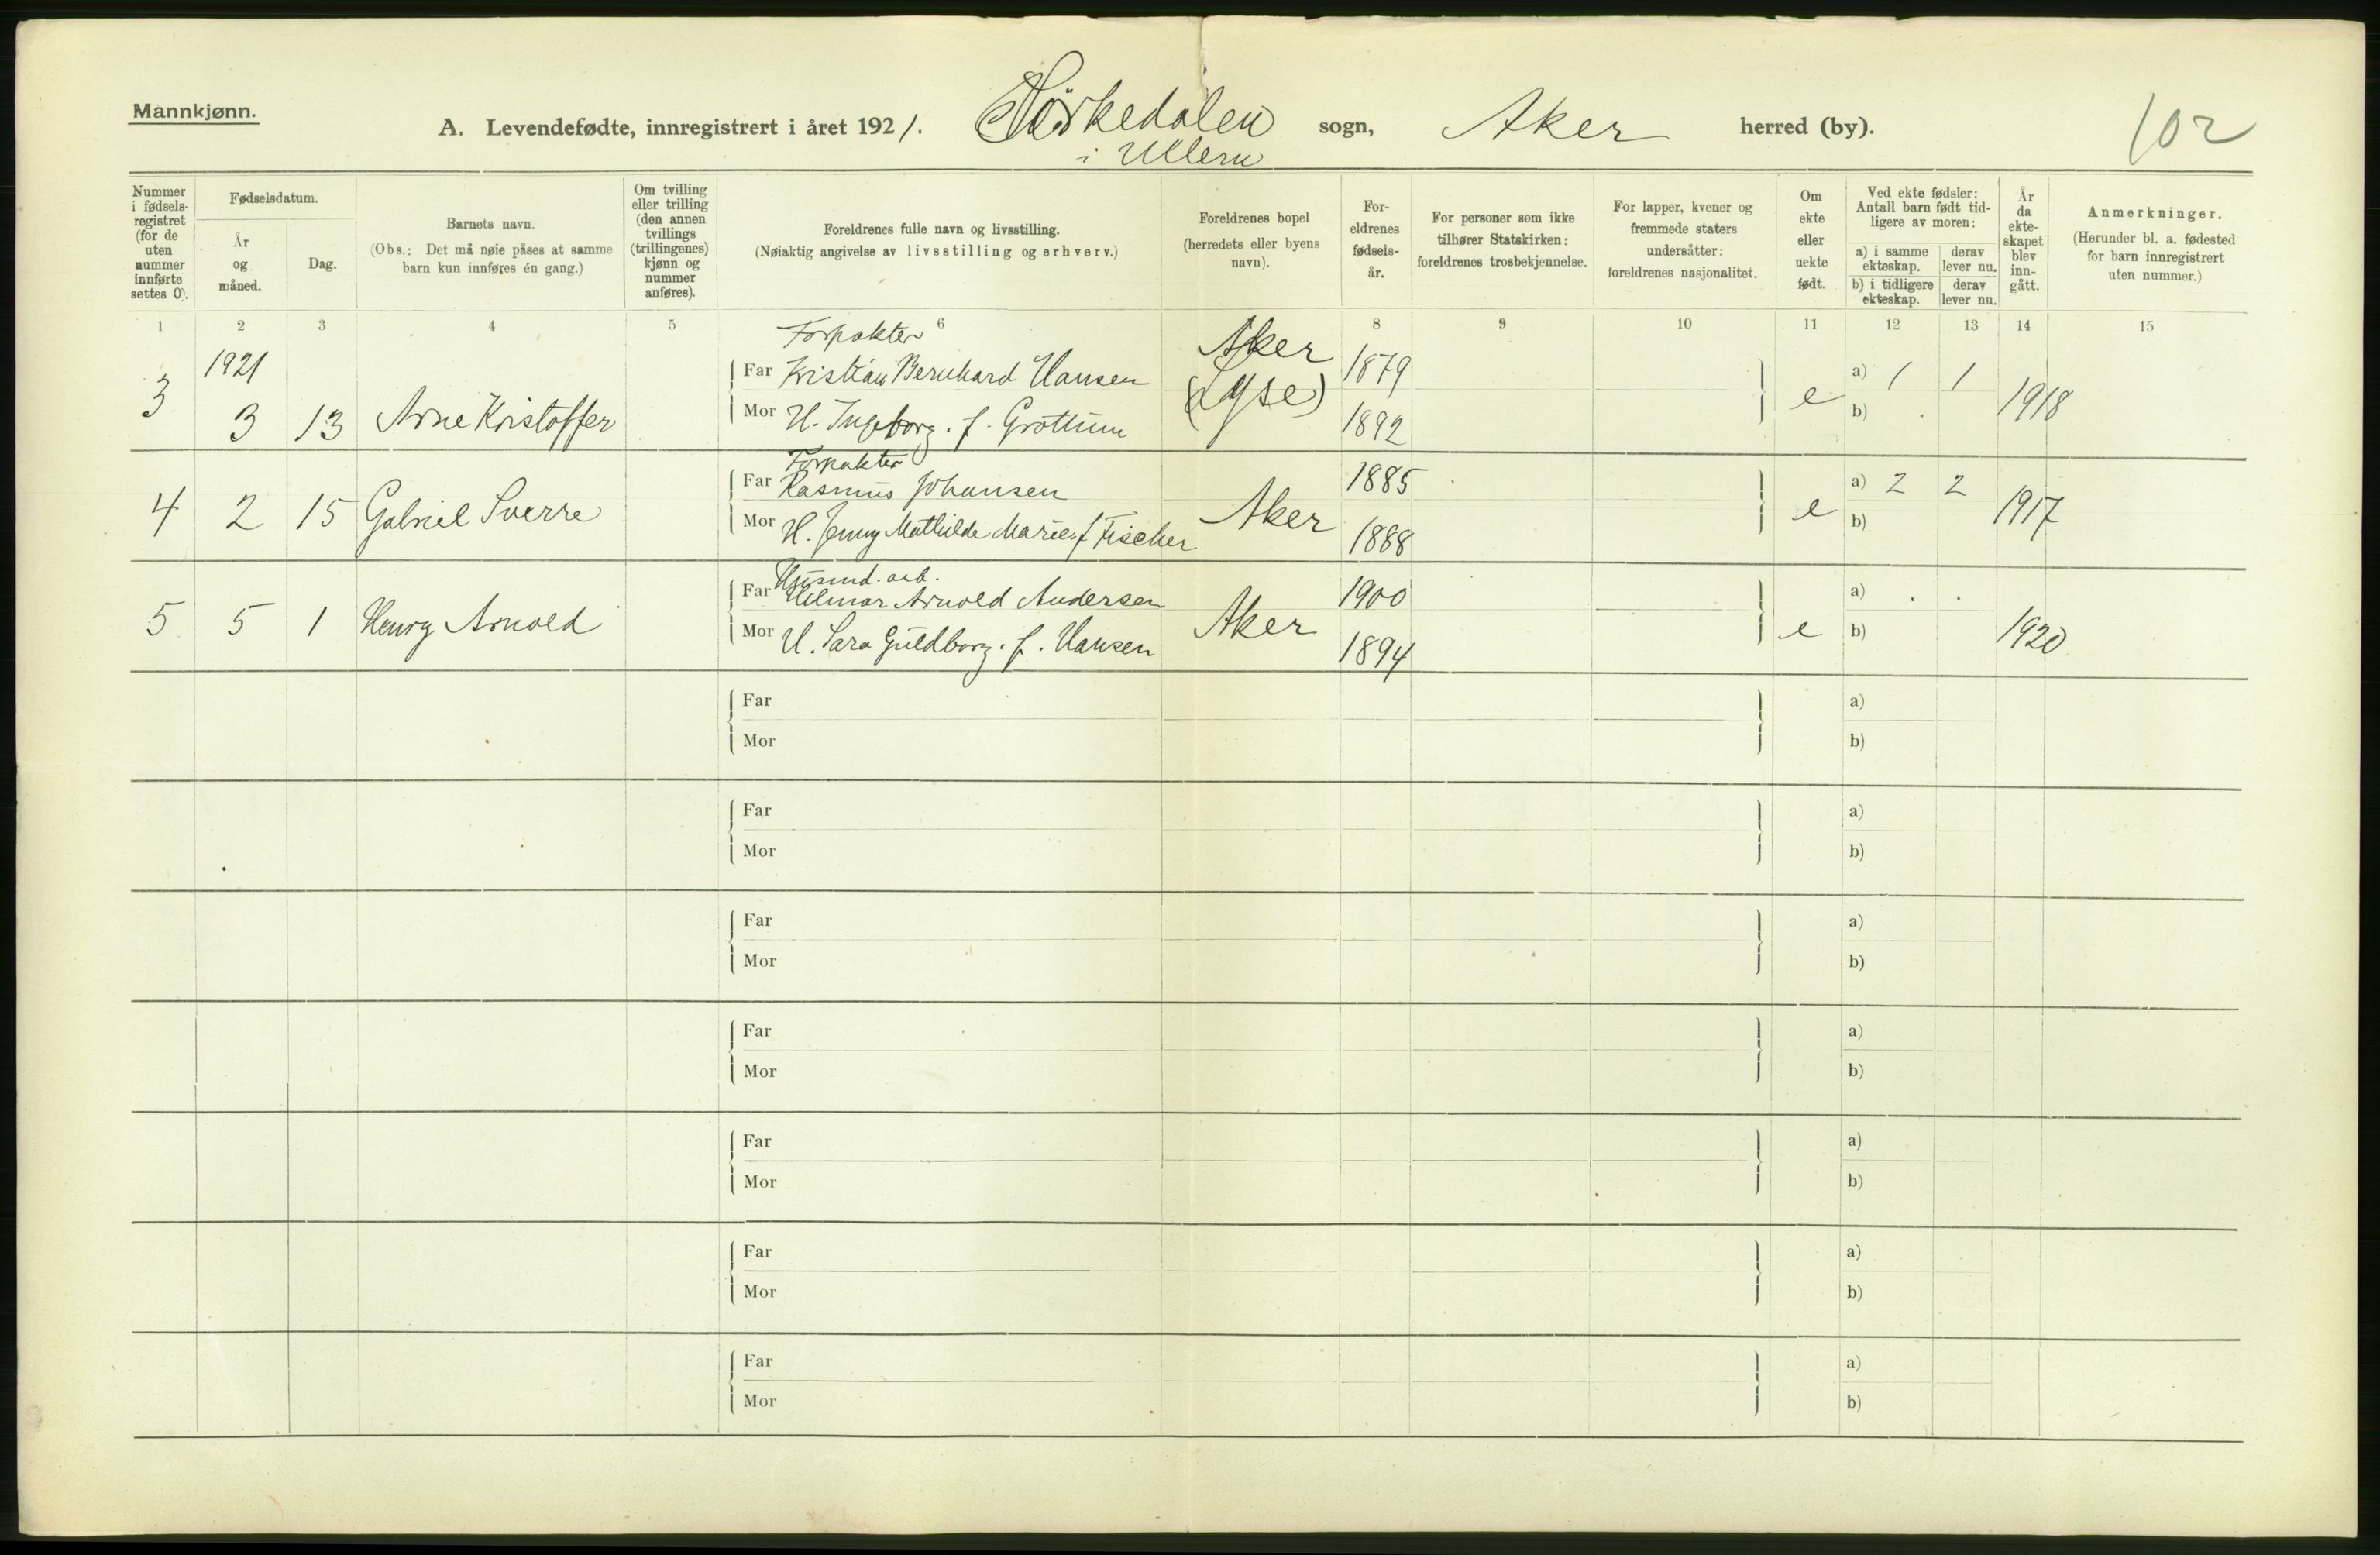 Mannkjønn.
A. Levendefødte, innregistrert i året 1921. Sörkedalen sogn, Aker herred (by). 102
i Ullern
Nummer i fødselsregistret (for de uten nummer innførte settes 0).
Fødselsdatum.
År og måned.
Dag.
Barnets navn.
(Obs.: Det må nøie påses at samme barn kun innføres én gang.)
Om tvilling eller trilling (den annen tvillings (trillingenes) kjønn og nummer anføres).
Foreldrenes fulle navn og livsstilling.
(Nøiaktig angivelse av livsstilling og erhverv.)
Foreldrenes bopel (herredets eller byens navn).
Foreldrenes fødselsår.
For personer som ikke tilhører Statskirken: foreldrenes trosbekjennelse.
For lapper, kvener og fremmede staters undersåtter: foreldrenes nasjonalitet.
Om ekte eller uekte født.
Ved ekte fødsler: Antall barn født tidligere av moren:
a) i samme ekteskap. derav lever nu.
b) i tidligere ekteskap. derav lever nu.
År da ekteskapet blev inngått.
Anmerkninger.
(Herunder bl. a. fødested for barn innregistrert uten nummer.)
1 2 3 4 5 6 8 9 10 11 12 13 14 15
Forpakter
1921 Far Kristian Bernhard Hansen Aker 1879 a) 1 1
3 3 13 Arne Kristoffer Mor H. Ingeborg. f. Gröttum (Lyse) 1892 e b) . 1918
Forpakter
Far Rasmus Johansen 1885 a) 2 2
4 2 15 Gabriel Sverre Mor H. Jenny Mathilde Marie f Fischer Aker 1888 e b) 1917
Husmd. arb.
Far Hilmar Arnold Andersen 1900 a) . .
5 5 1 Henry Arnold Mor H. Sara Guldborg. f. Hansen Aker 1894 e b) 1920
Far a)
Mor b)
Far a)
Mor b)
Far a)
Mor b)
Far a)
Mor b)
Far a)
Mor b)
Far a)
Mor b)
Far a)
Mor b)